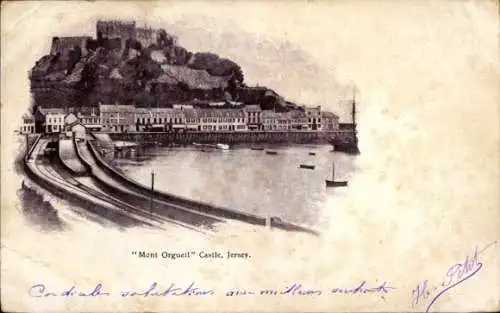 "Mont Orgueil" Castle, Jersey.
Cordiales salutations aux meilleurs souhaits